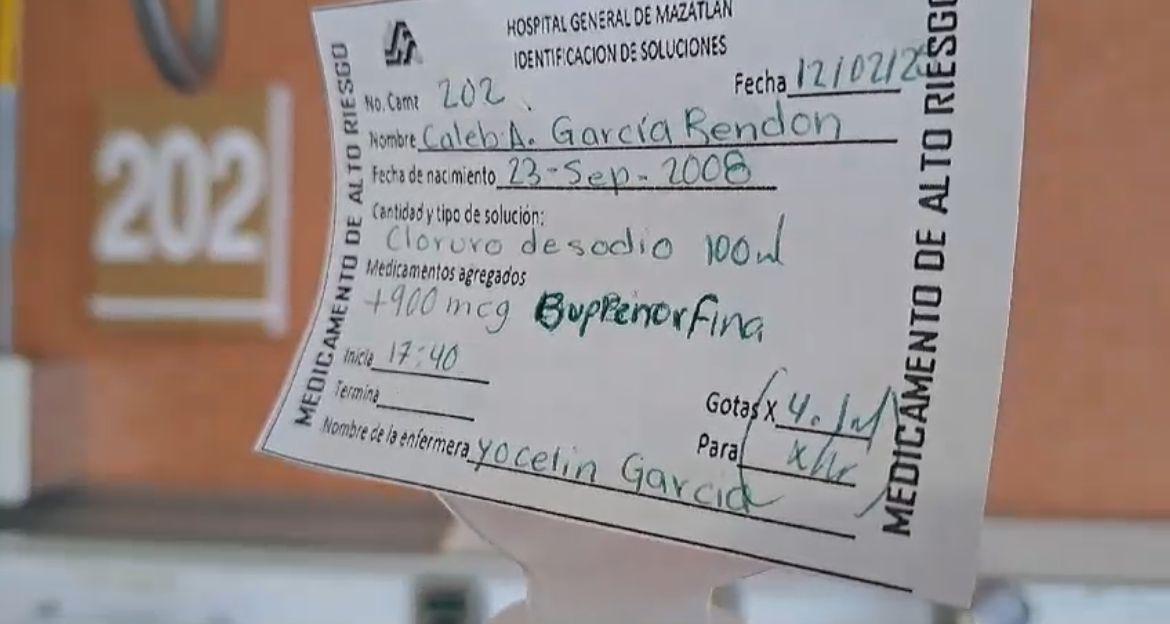 202
HOSPITAL GENERAL DE MAZATLAN
IDENTIFICACION DE SOLUCIONES
No. Cama 202
Fecha 12/02/25
Nombre Caleb A. García Rendon
Fecha de nacimiento 23-Sep-2008
Cantidad y tipo de solución:
Cloruro de sodio 100ml
Medicamentos agregados
+900 mcg BupRenorfina
Inicia 17:40
Termina
Gotas X 4.1ml
Para x/hr
Nombre de la enfermera Yocelin Garcia
MEDICAMENTO DE ALTO RIESGO
MEDICAMENTO DE ALTO RIESGO